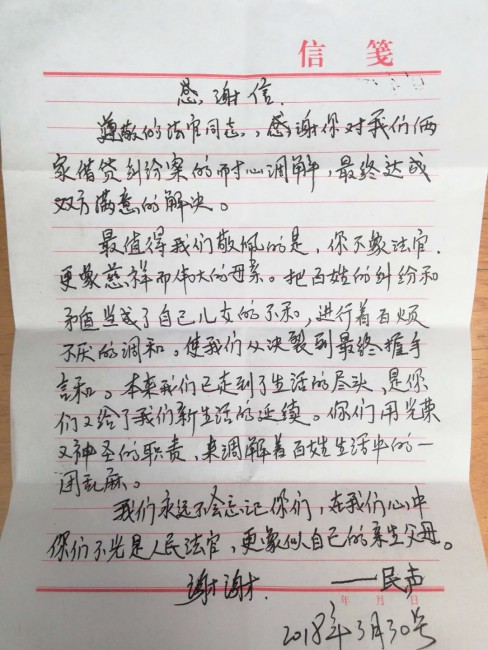 信笺
感谢信.
尊敬的法官同志，感谢你对我们俩
家借贷纠纷案的耐心调解，最终达成
双方满意的解决。
最值得我们敬佩的是，你不象法官，
更象慈祥而伟大的母亲。把百姓的纠纷和
矛盾当成了自己儿女的不和，进行着百烦
不厌的调和。使我们从决裂到最终握手
言和。本来我们已走到了生活的尽头，是你
们又给了我们新生活的延续。你们用光荣
又神圣的职责，来调解着百姓生活中的一
团乱麻。
我们永远不会忘记你们，在我们心中
你们不光是人民法官，更象似自己的亲生父母。
谢谢. ——民声
年 月 日
2018年3月30号